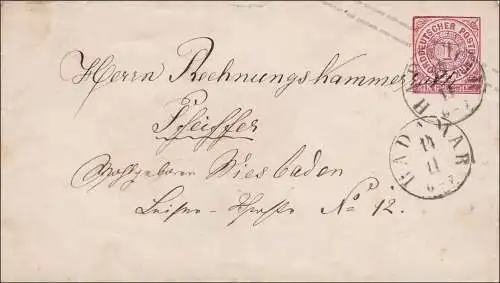 NORDDEUTSCHER POSTBEZIRK
1
Herrn Rechnungskammerrath
Pfeiffer
Wohlgeboren Wiesbaden
Luisen-Straße No 12.
HADAMAR
14
11
6-7